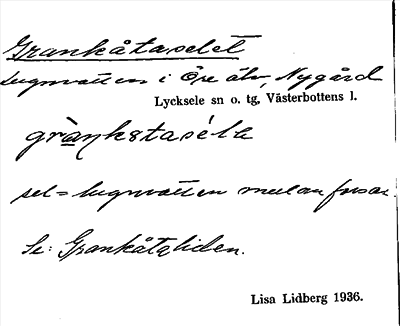 Grankåtaselet
lugnvatten i Öre älv, Nygård
Lycksele sn o. tg, Västerbottens l.
gràŋkåtasé̀la
sel = lugnvatten mellan forsar
Se: Grankåtaliden.
Lisa Lidberg 1936.